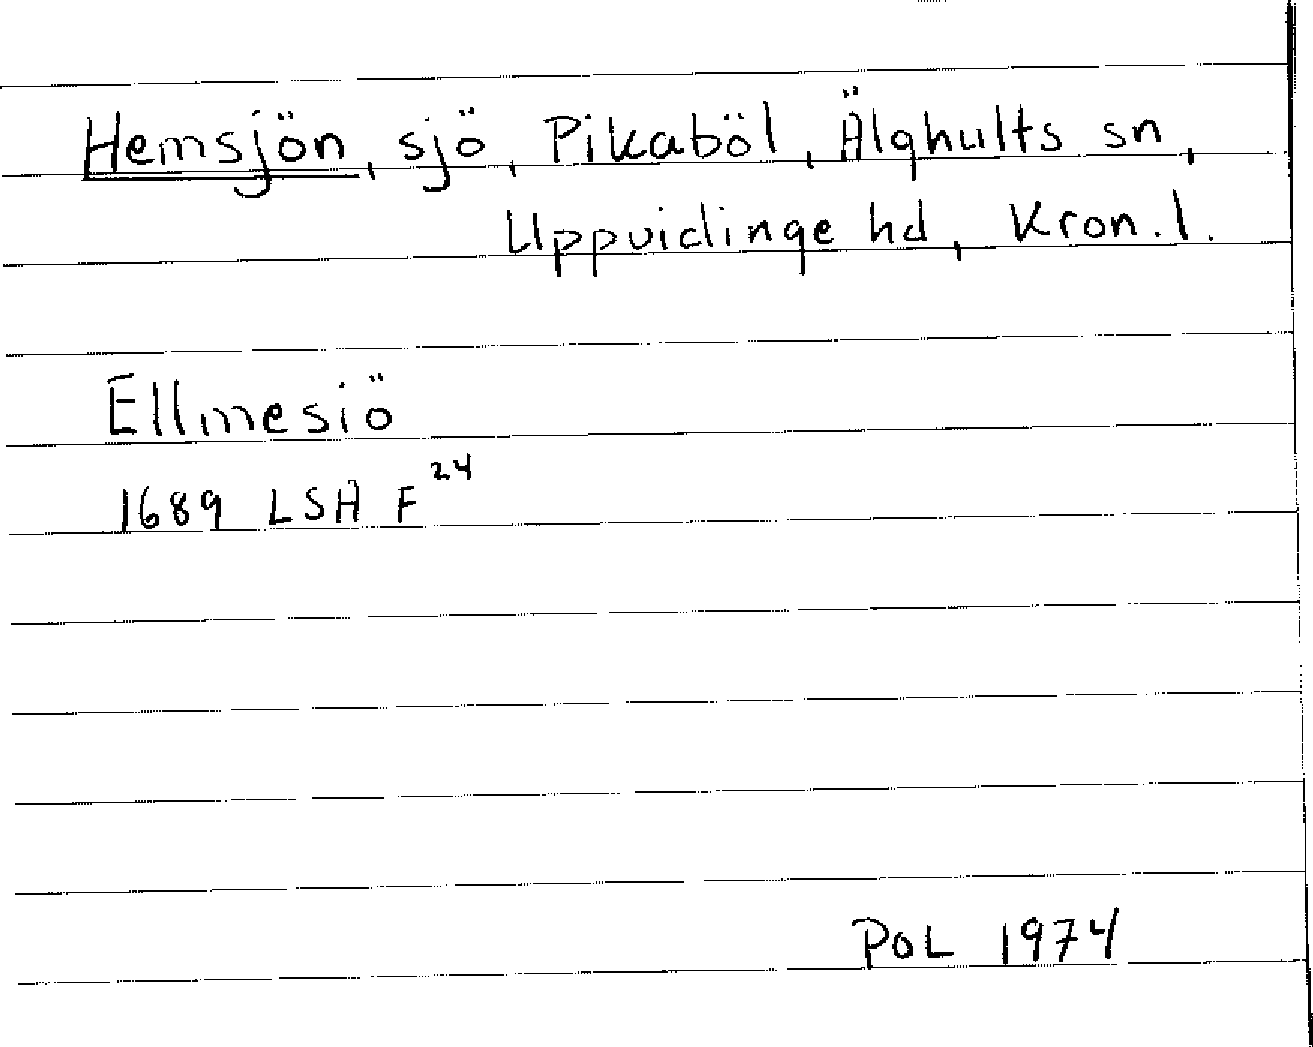 Hemsjön, sjö, Pikaböl, Älghults sn,
Uppvidinge hd, Kron. l.
Ellmesiö
1689 LSA F²⁴
POL 1974